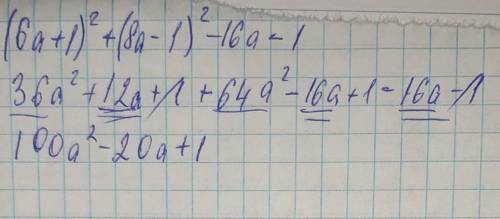 (6a+1)² + (8a-1)² - 16a - 1
36a² + 12a + 1 + 64a² - 16a + 1 - 16a - 1
100a² - 20a + 1